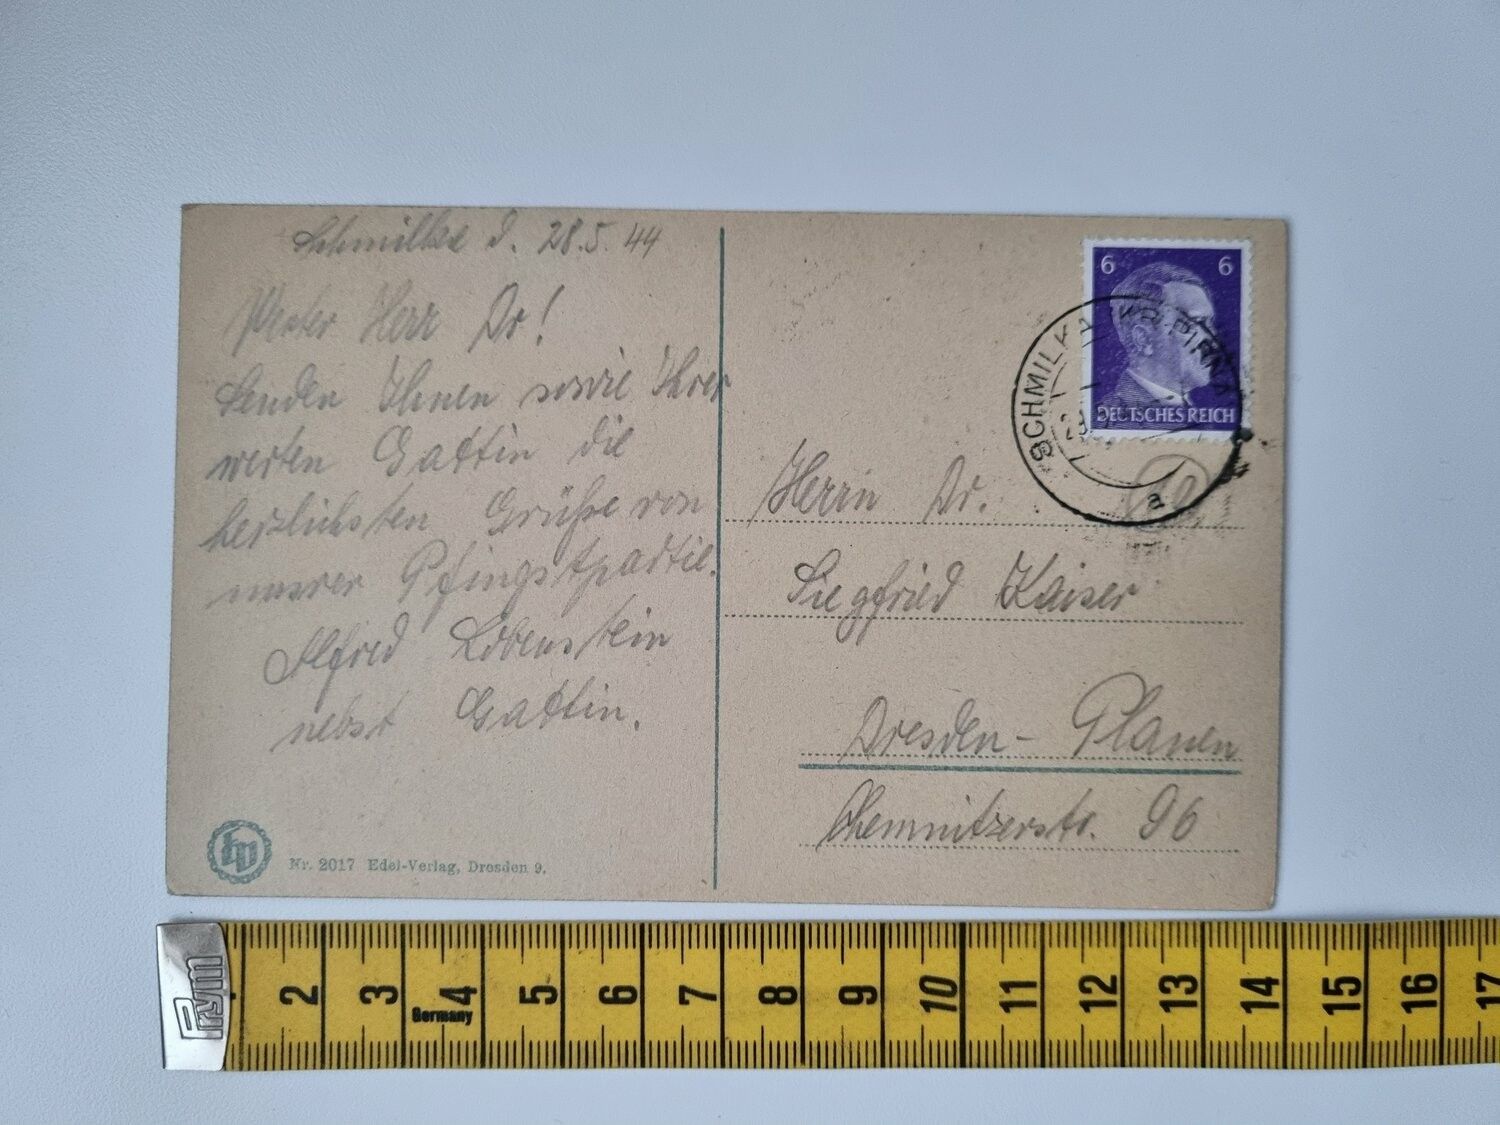 Schmilka d. 28.5.44
Werter Herr Dr!
Senden Ihnen sowie Ihrer
werten Gattin die
herzlichsten Grüße von
unsrer Pfingstpartie.
Alfred Löbenstein
nebst Gattin.
Nr. 2017 Edel-Verlag, Dresden 9.
6 6
DEUTSCHES REICH
SCHMILKA (KR. PIRNA)
a
Herrn Dr.
Siegfried Kaiser
Dresden - Plauen
Chemnitzerstr. 96
Prym
2 3 4 5 6 7 8 9 10 11 12 13 14 15 16 17
Germany